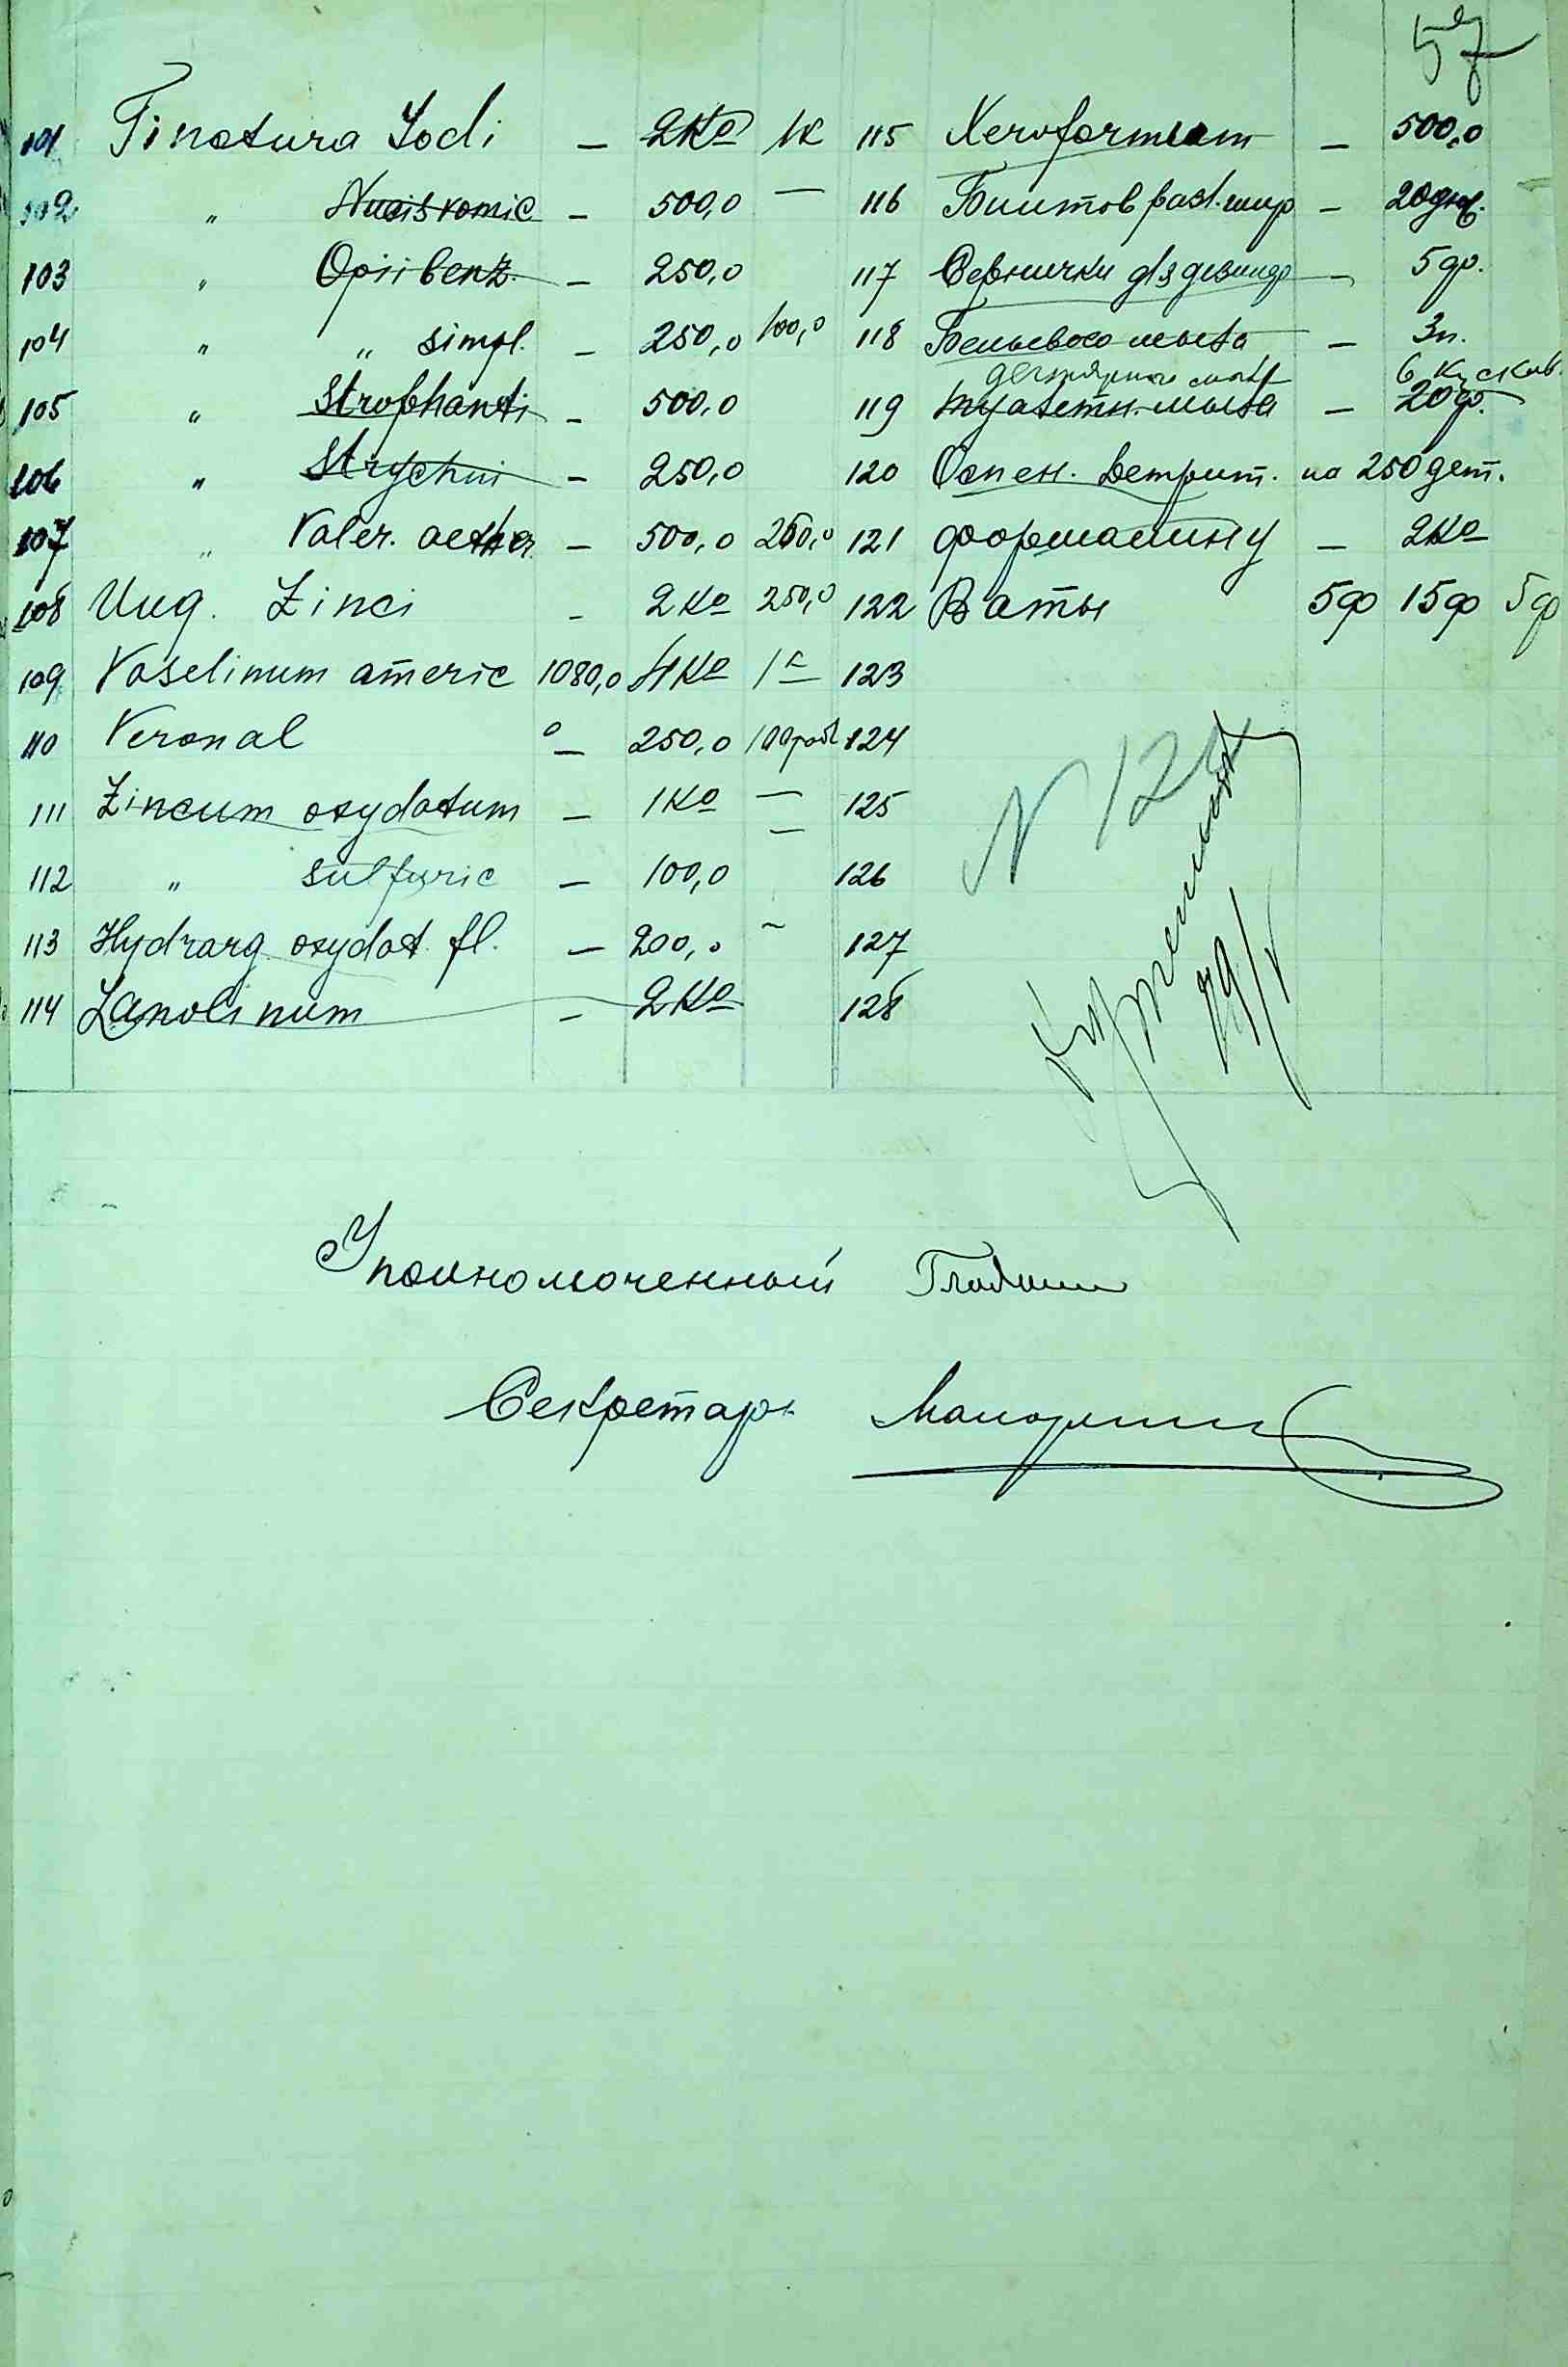 57
101 Tinctura Jodi — 2Ko 1K 115 Xeroformium — 500,0
102 " Nucis vomic — 500,0 — 116 Бинтов разл. шир — 20 дюж.
103 " Opii benz. — 250,0 117 — 5 ф.
104 " " simpl. — 250,0 100,0 118 Бельевого мыла — 3п.
дегтярного мыла 6 кусков
105 " Strophanti — 500,0 119 туалетн. мыла — 20ф.
106 " Strychni — 250,0 120 Оспен. Детрит. на 250 дет.
107 " Valer. aether — 500,0 250,0 121 Формалину — 2Ko
108 Ung. Zinci — 2Ko 250,0 122 Ваты 5ф 15ф 5ф
109 Vaselinum americ 1080,0 4Ko 1к 123
110 Veronal — 250,0 124
111 Zincum oxydatum — 1Ko — 125
112 " sulfuric — 100,0 126
113 Hydrarg. oxydat. fl. — 200,0 127
114 Lanolinum — 2Ko 128
N
19/V
Уполномоченный
Секретарь